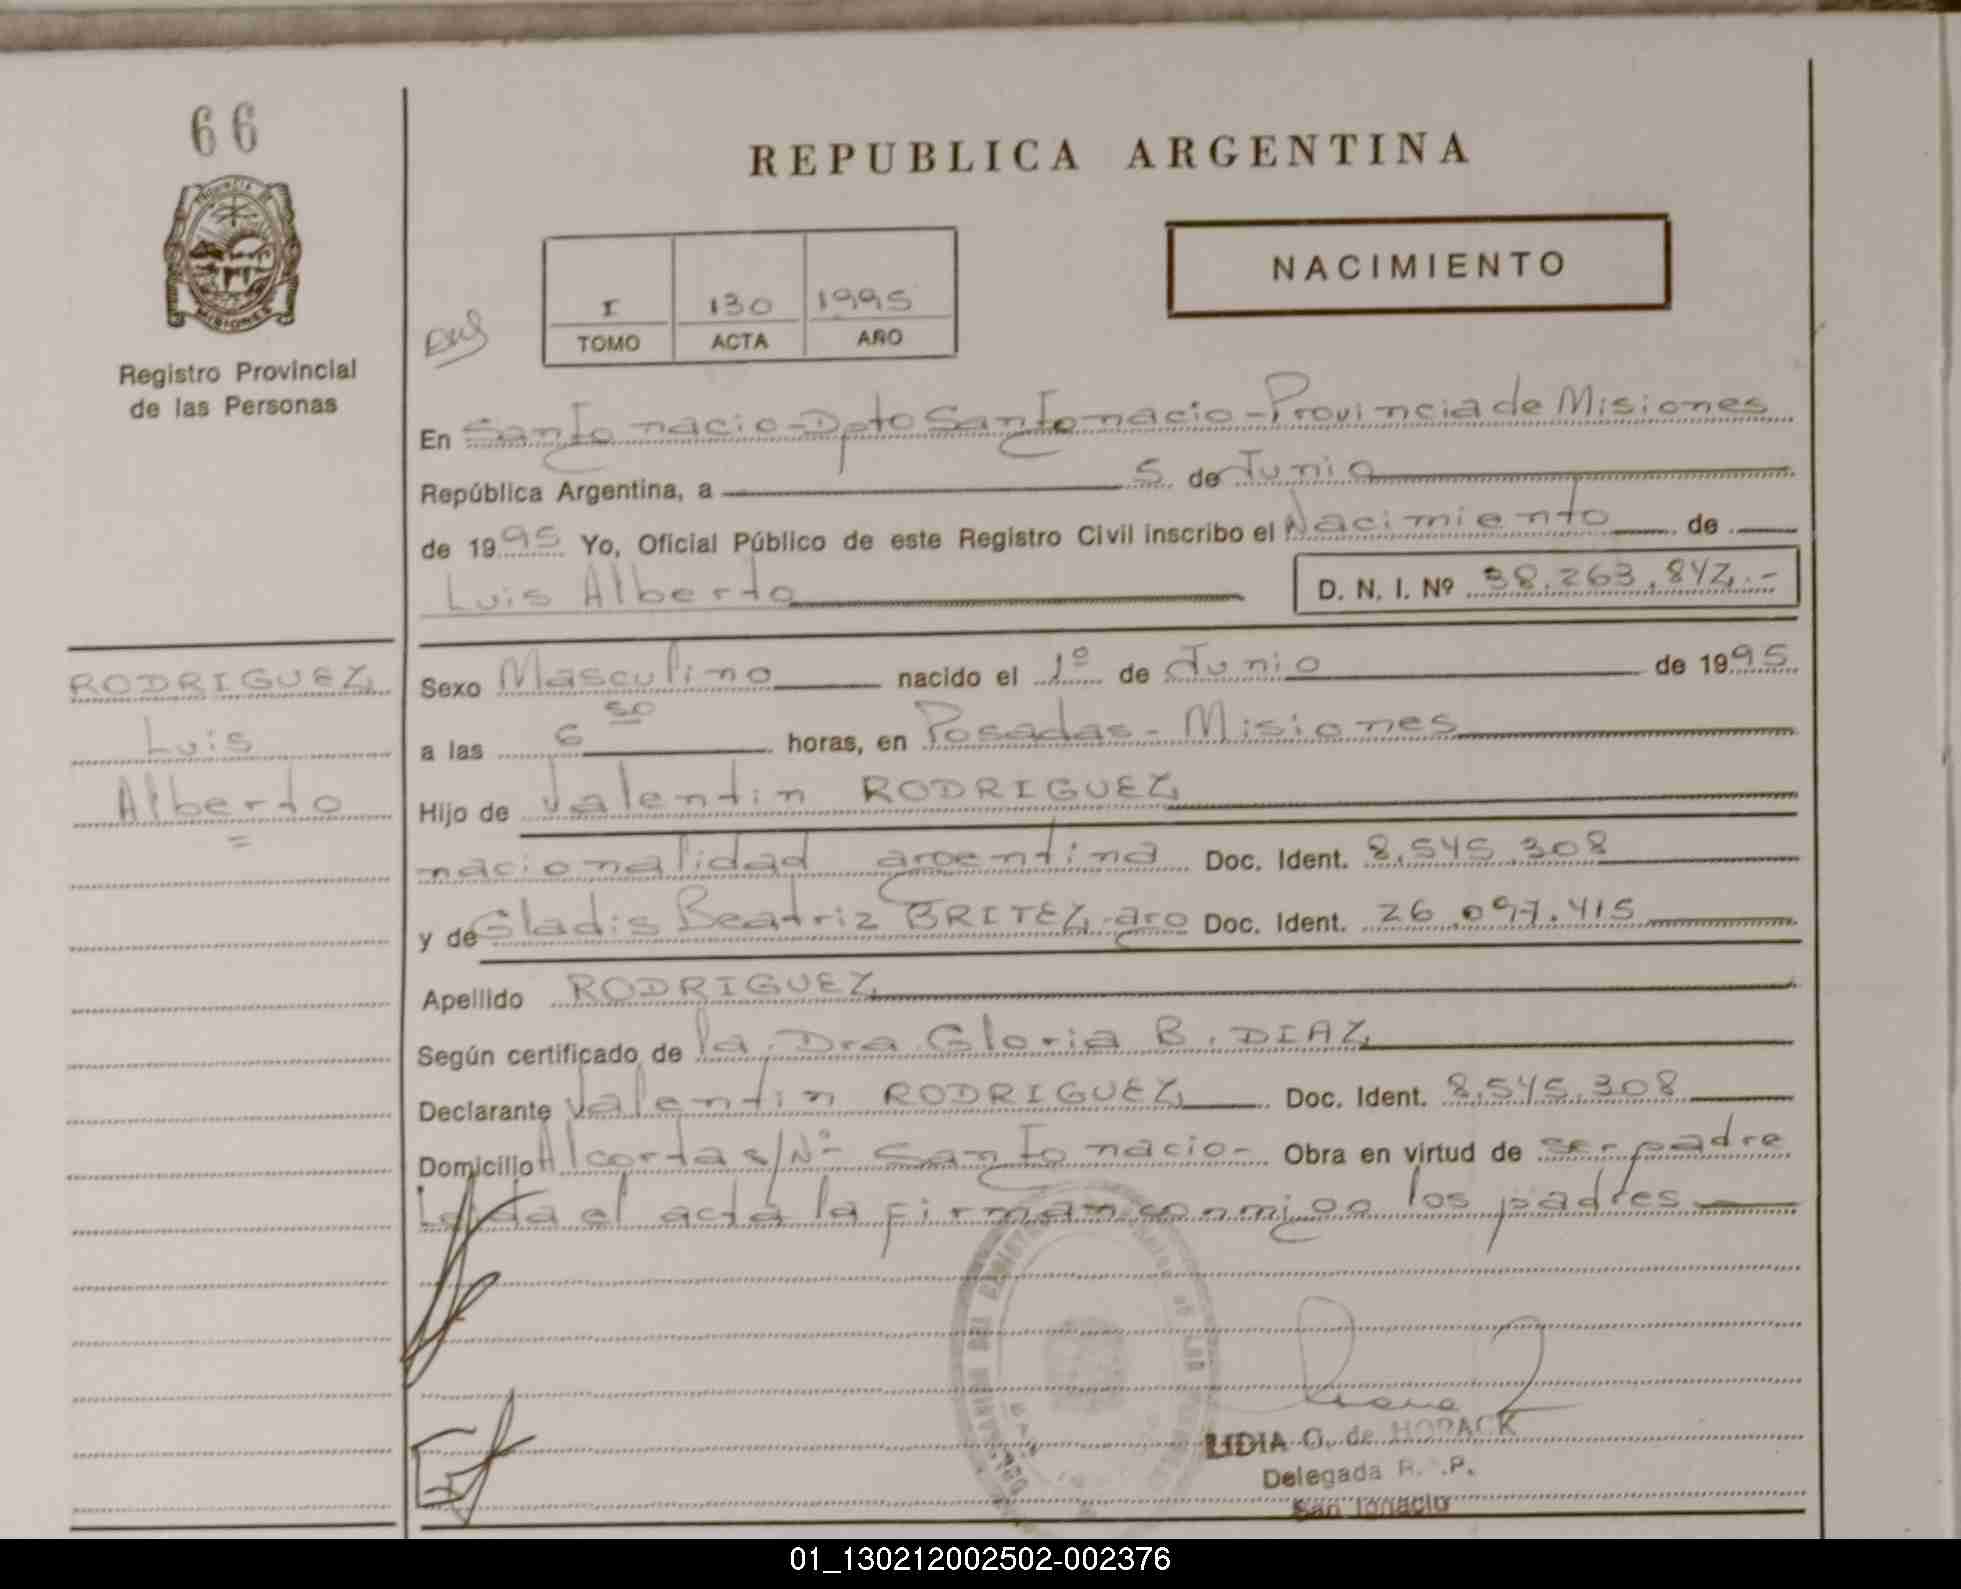 66
PROVINCIA DE
MISIONES
Registro Provincial
de las Personas
RODRIGUEZ
Luis
Alberto
=
REPUBLICA ARGENTINA
NACIMIENTO
I 130 1995
TOMO ACTA AÑO
En San Ignacio - Dpto San Ignacio - Provincia de Misiones
República Argentina, a 5 de Junio
de 1995 Yo, Oficial Público de este Registro Civil inscribo el Nacimiento de
Luis Alberto D. N. I. Nº 38.263.842.-
Sexo Masculino nacido el 1º de Junio de 1995
a las 6 50 horas, en Posadas - Misiones
Hijo de Valentin RODRIGUEZ
nacionalidad argentina Doc. Ident. 8.545.308
y de Gladis Beatriz BRITEZ - arg Doc. Ident. 26.097.415
Apellido RODRIGUEZ
Según certificado de la Dra Gloria B. DIAZ
Declarante Valentin RODRIGUEZ Doc. Ident. 8.545.308
Domicilio Alcorta s/Nº San Ignacio - Obra en virtud de ser padre
Leída el acta la firman conmigo los padres
LIDIA G. de HORACK
Delegada R. .P.
San Ignacio
01_130212002502-002376